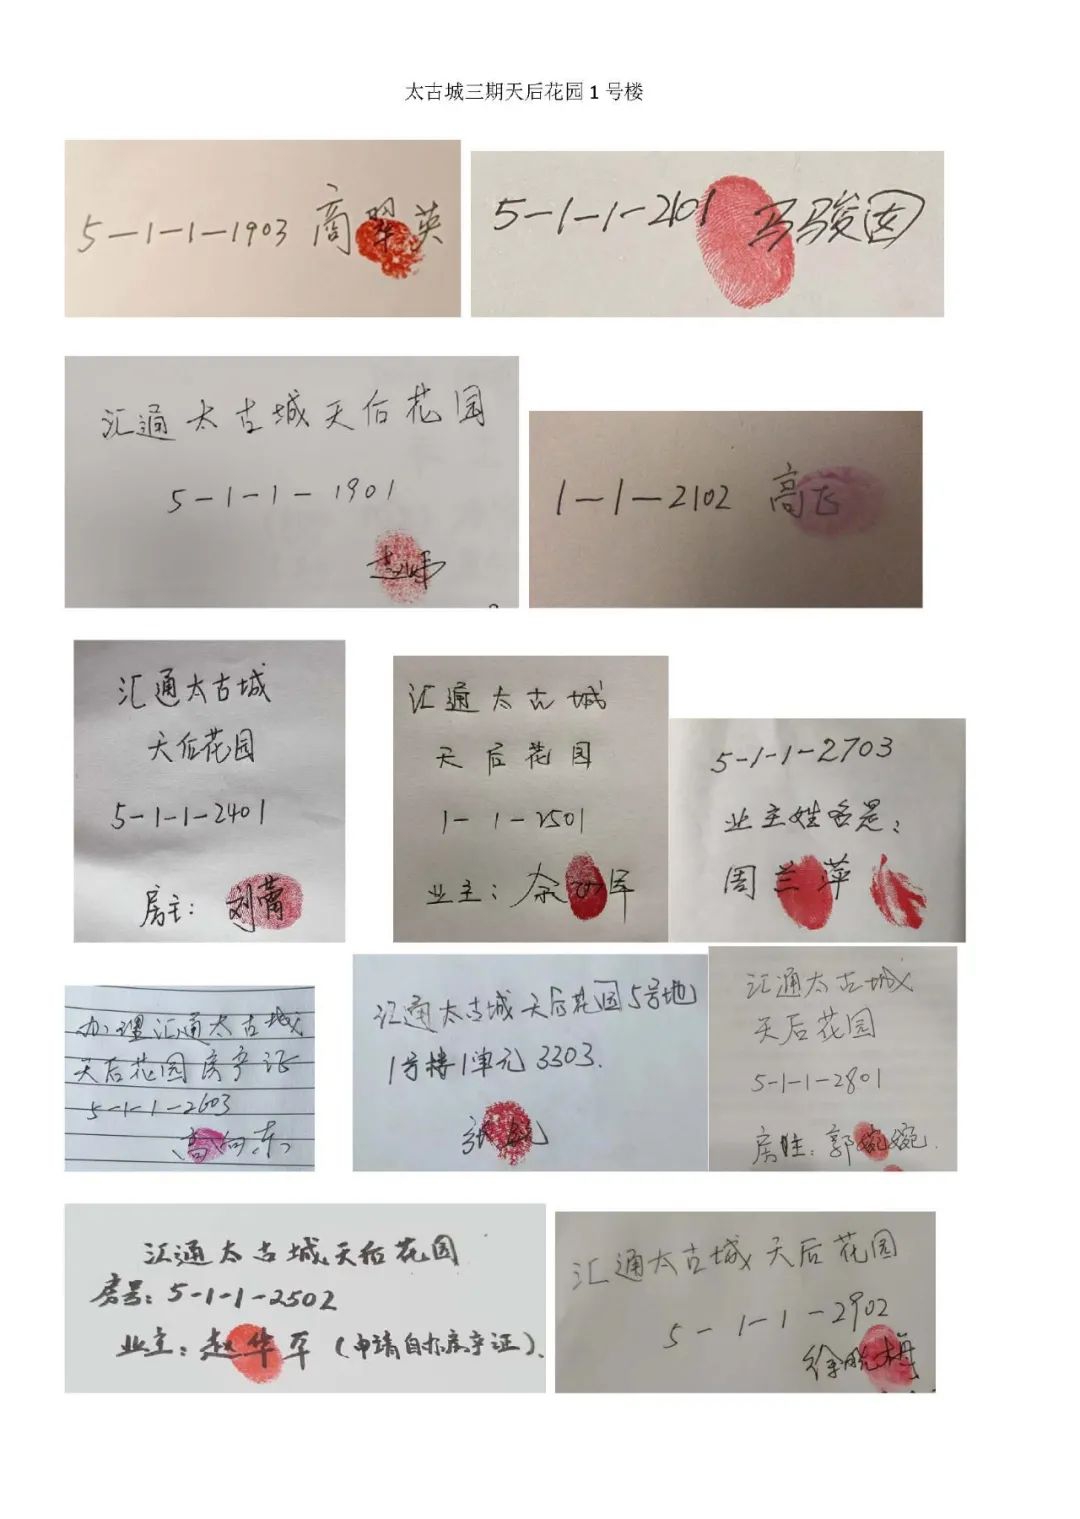 太古城三期天后花园1号楼
5-1-1-1903 商翠英
5-1-1-2101 马骏囡
汇通太古城天后花园
5-1-1-1901
1-1-2102 高飞
汇通太古城
天后花园
5-1-1-2401
房主：刘蕾
汇通太古城
天后花园
1-1-2501
业主：
5-1-1-2703
业主姓名是：
周兰萍
办理汇通太古城
天后花园房产证
5-1-1-2603
高向东
汇通太古城天后花园5号地
1号楼1单元3303.
汇通太古城
天后花园
5-1-1-2801
房姓：郭婉婉.
汇通太古城天后花园
房号：5-1-1-2502
业主：赵华军（申请自办房产证）.
汇通太古城天后花园
5-1-1-2902
徐晓梅